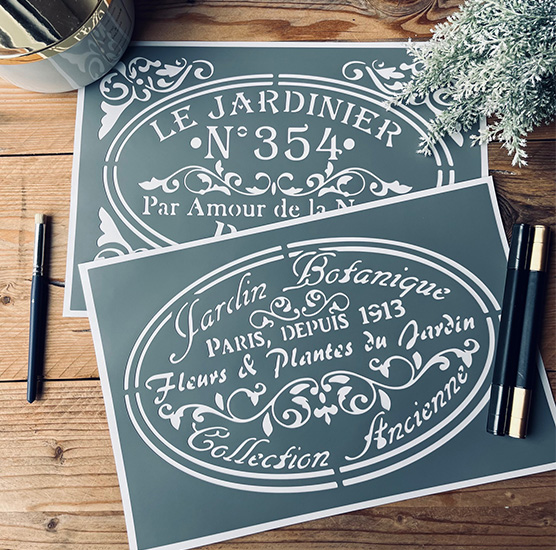 LE JARDINIER
N° 354
Par Amour de la
Jardin Botanique
PARIS, DEPUIS 1913
Fleurs & Plantes du Jardin
Collection Ancienne